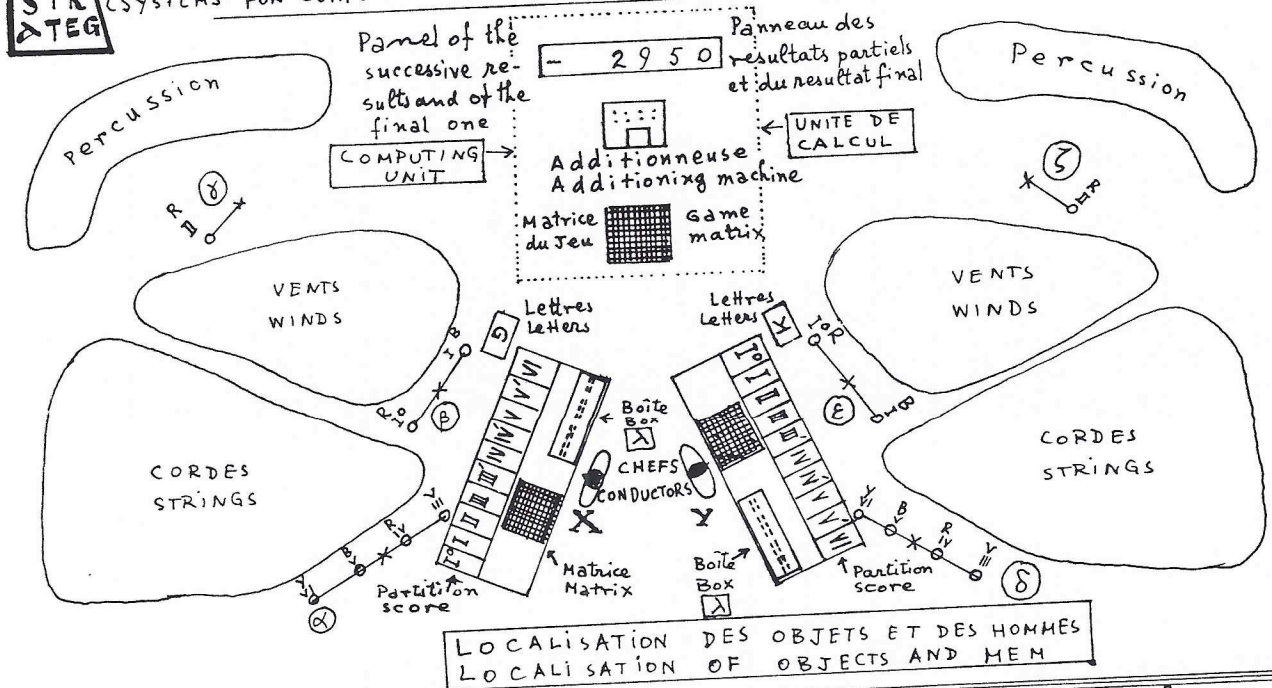 ATEG
SYSTEMS FOR
Panel of the
successive re-
sults and of the
final one
- 2950
Panneau des
resultats partiels
et du resultat final
COMPUTING
UNIT
UNITE DE
CALCUL
Additionneuse
Additioning machine
Matrice
du Jeu
Game
matrix
Percussion
Percussion
R
II
γ
ζ
R
II
VENTS
WINDS
VENTS
WINDS
Lettres
Letters
G
Lettres
Letters
K
B
I
R
I°
β
R
I°
ε
B
I
CORDES
STRINGS
CORDES
STRINGS
Boîte
Box
λ
CHEFS
CONDUCTORS
X
Y
I° I II III III' IV IV' V V' VI
I° I II III III' IV IV' V V' VI
V VI
B V
R IV
V III
α
V VI
B V
R IV
V III
δ
Partition
score
Matrice
Matrix
Boîte
Box
λ
Partition
score
LOCALISATION DES OBJETS ET DES HOMMES
LOCALISATION OF OBJECTS AND MEM